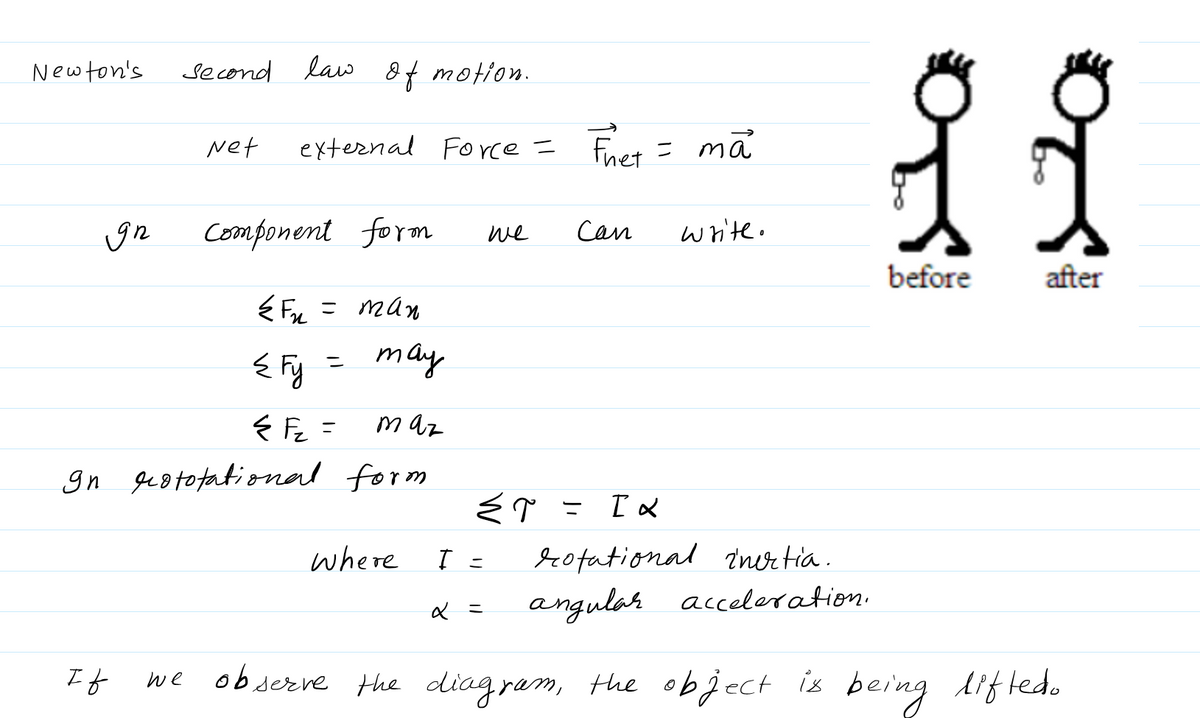 Newton's second law of motion.
Net external Force = F⃗net = ma⃗
In component form we can write.
ΣFx = max
ΣFy = may
ΣFz = maz
In rototational form
Στ = Iα
where I = rotational inertia.
α = angular acceleration.
If we observe the diagram, the object is being lifted.
before after